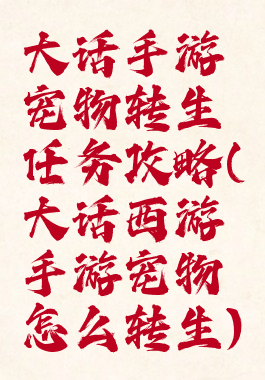 大话手游
宠物转生
任务攻略(
大话西游
手游宠物
怎么转生)